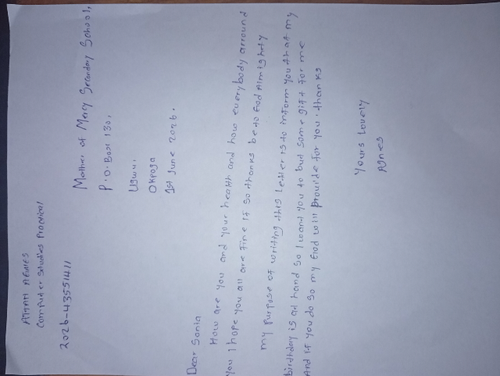 AGNES
Computer Studies Practical
2026-43551411
Mother of Mary Secondary School,
P.O. Box 130,
1st June 2026.
Dear Sonia
How are you and your health and how everybody arround
you I hope you all are fine if so thanks be to God Almighty
my purpose of writing this letter is to inform you that my
birthday is at hand so I want you to but some gift for me
And if you do so my God will provide for you. thanks
Yours Lovely
Agnes